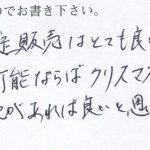 のでお書き下さい。
定販売はとても良
可能ならばクリスマス
があれば良いと思